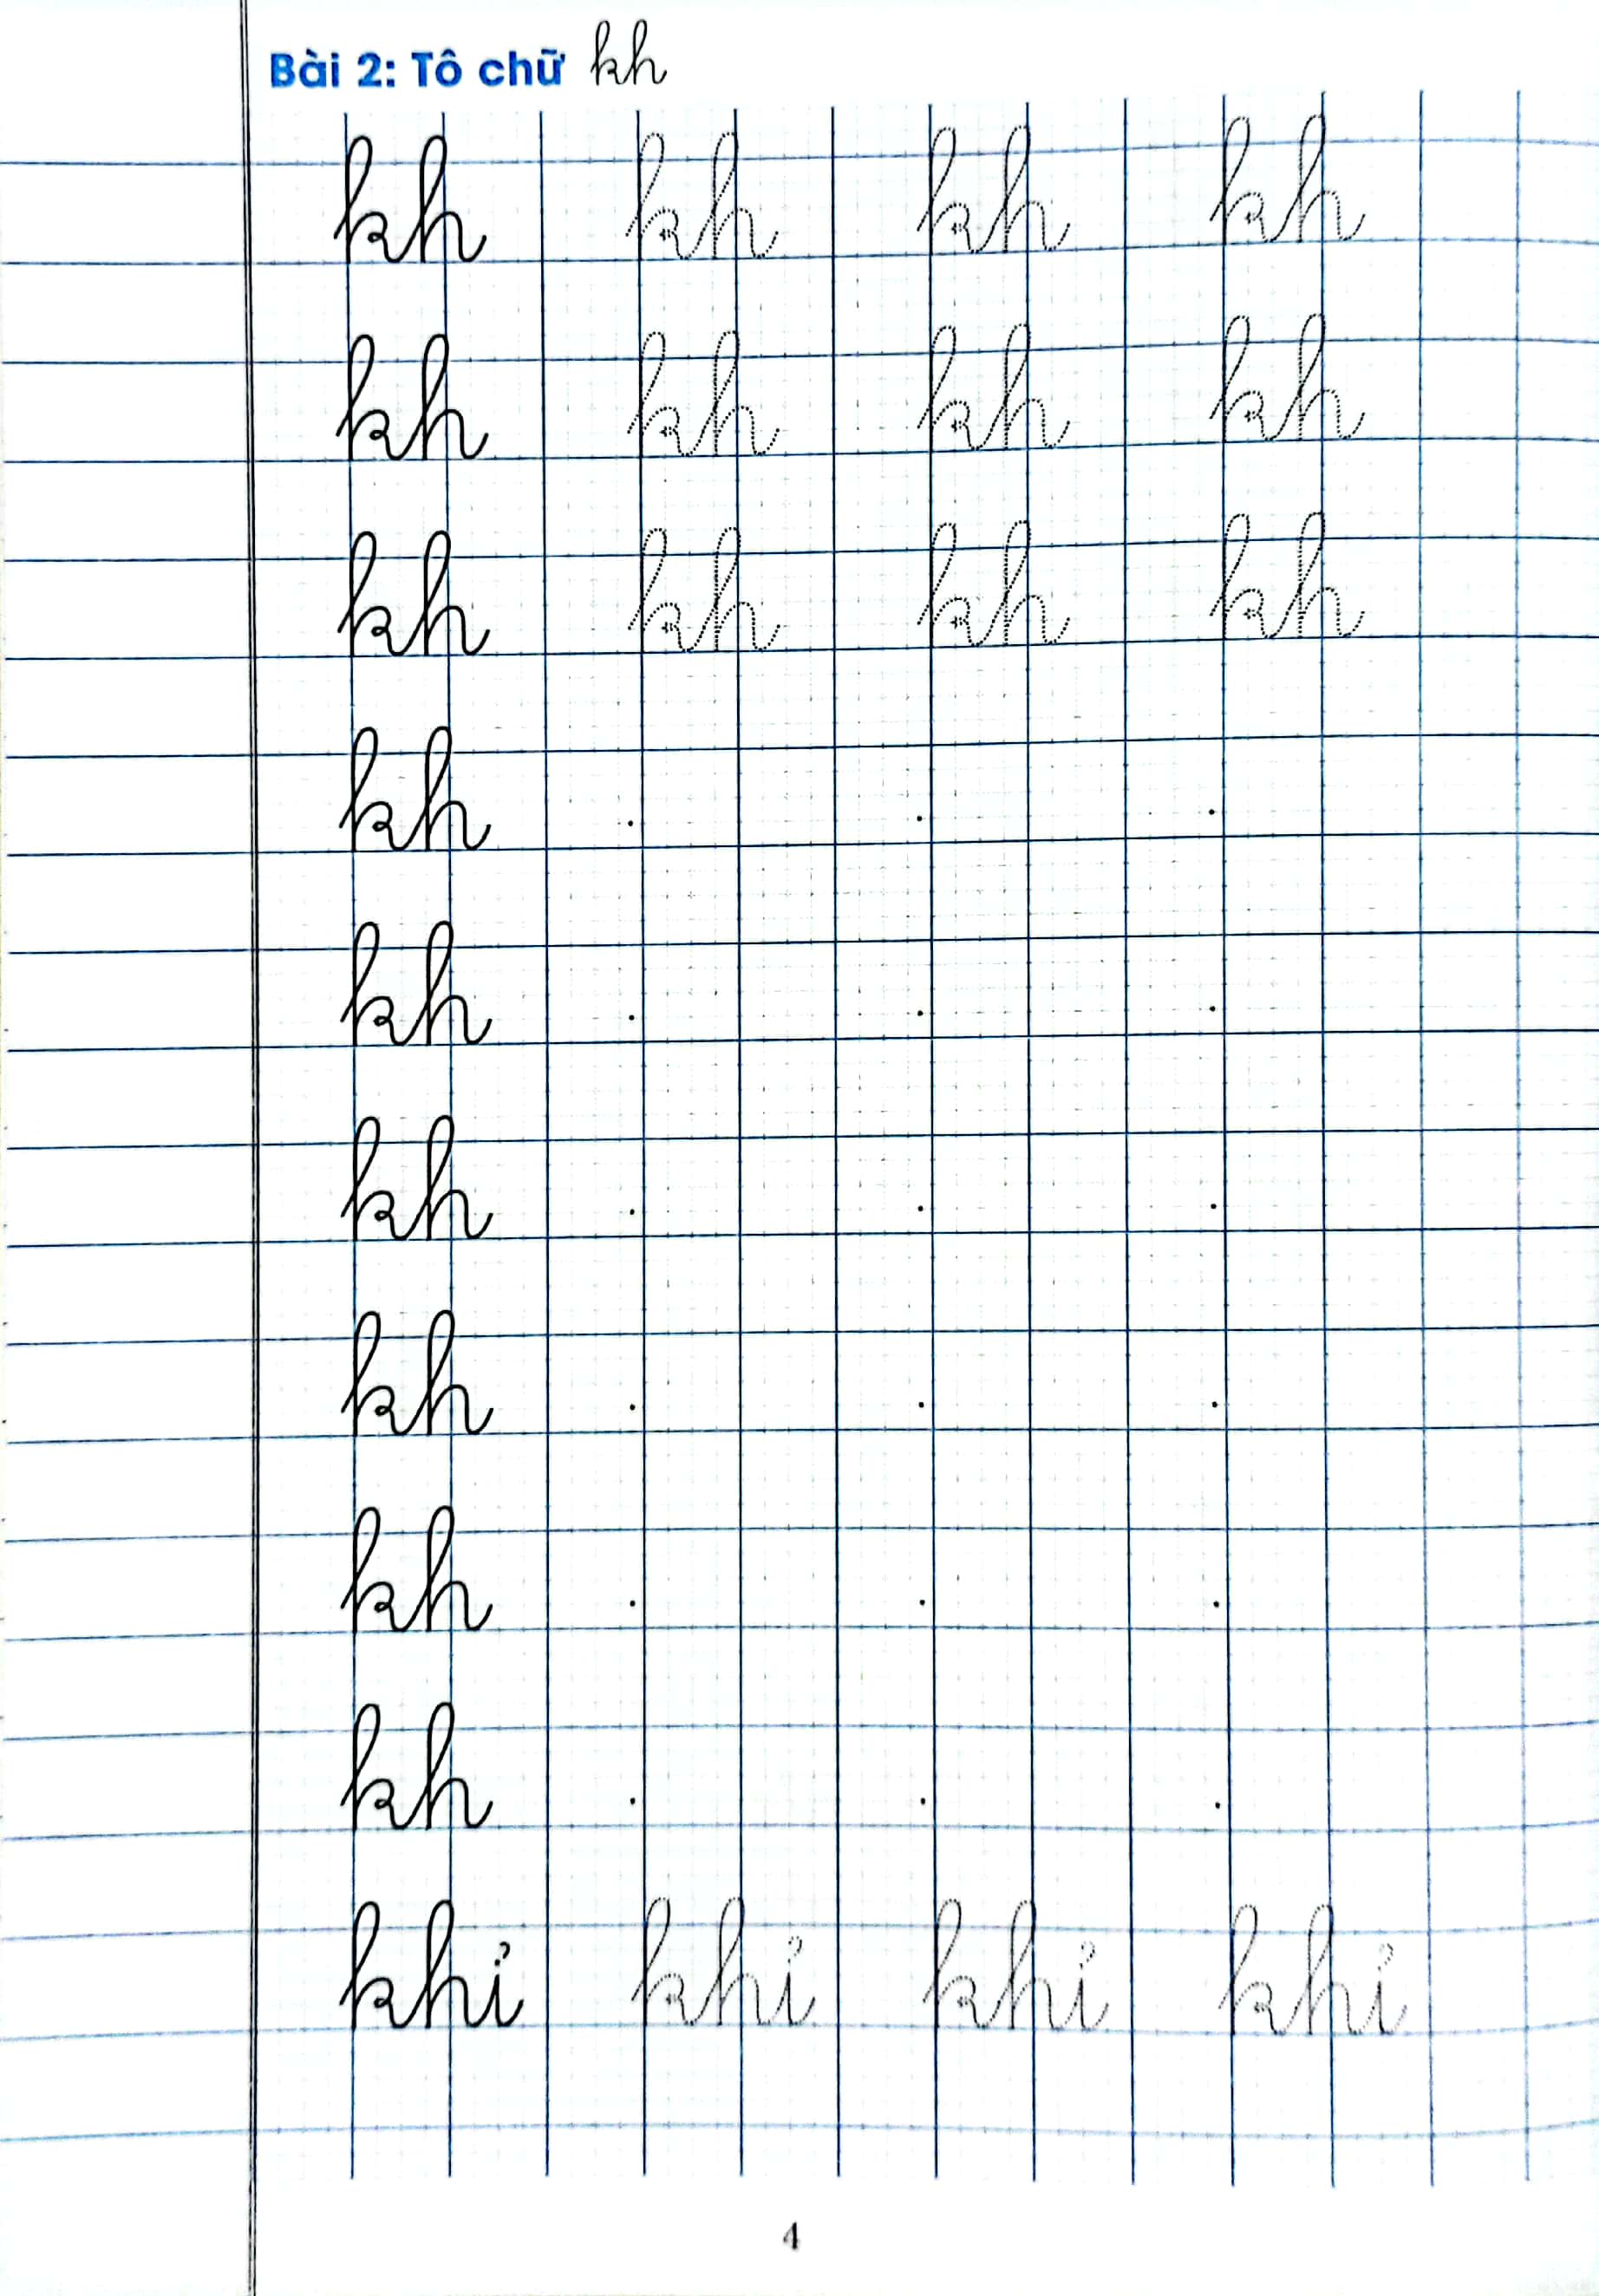 Bài 2: Tô chữ kh
kh kh kh kh
kh kh kh kh
kh kh kh kh
kh . . .
kh . . .
kh . . .
kh . . .
kh . . .
kh . . .
khỉ khỉ khỉ khỉ
4